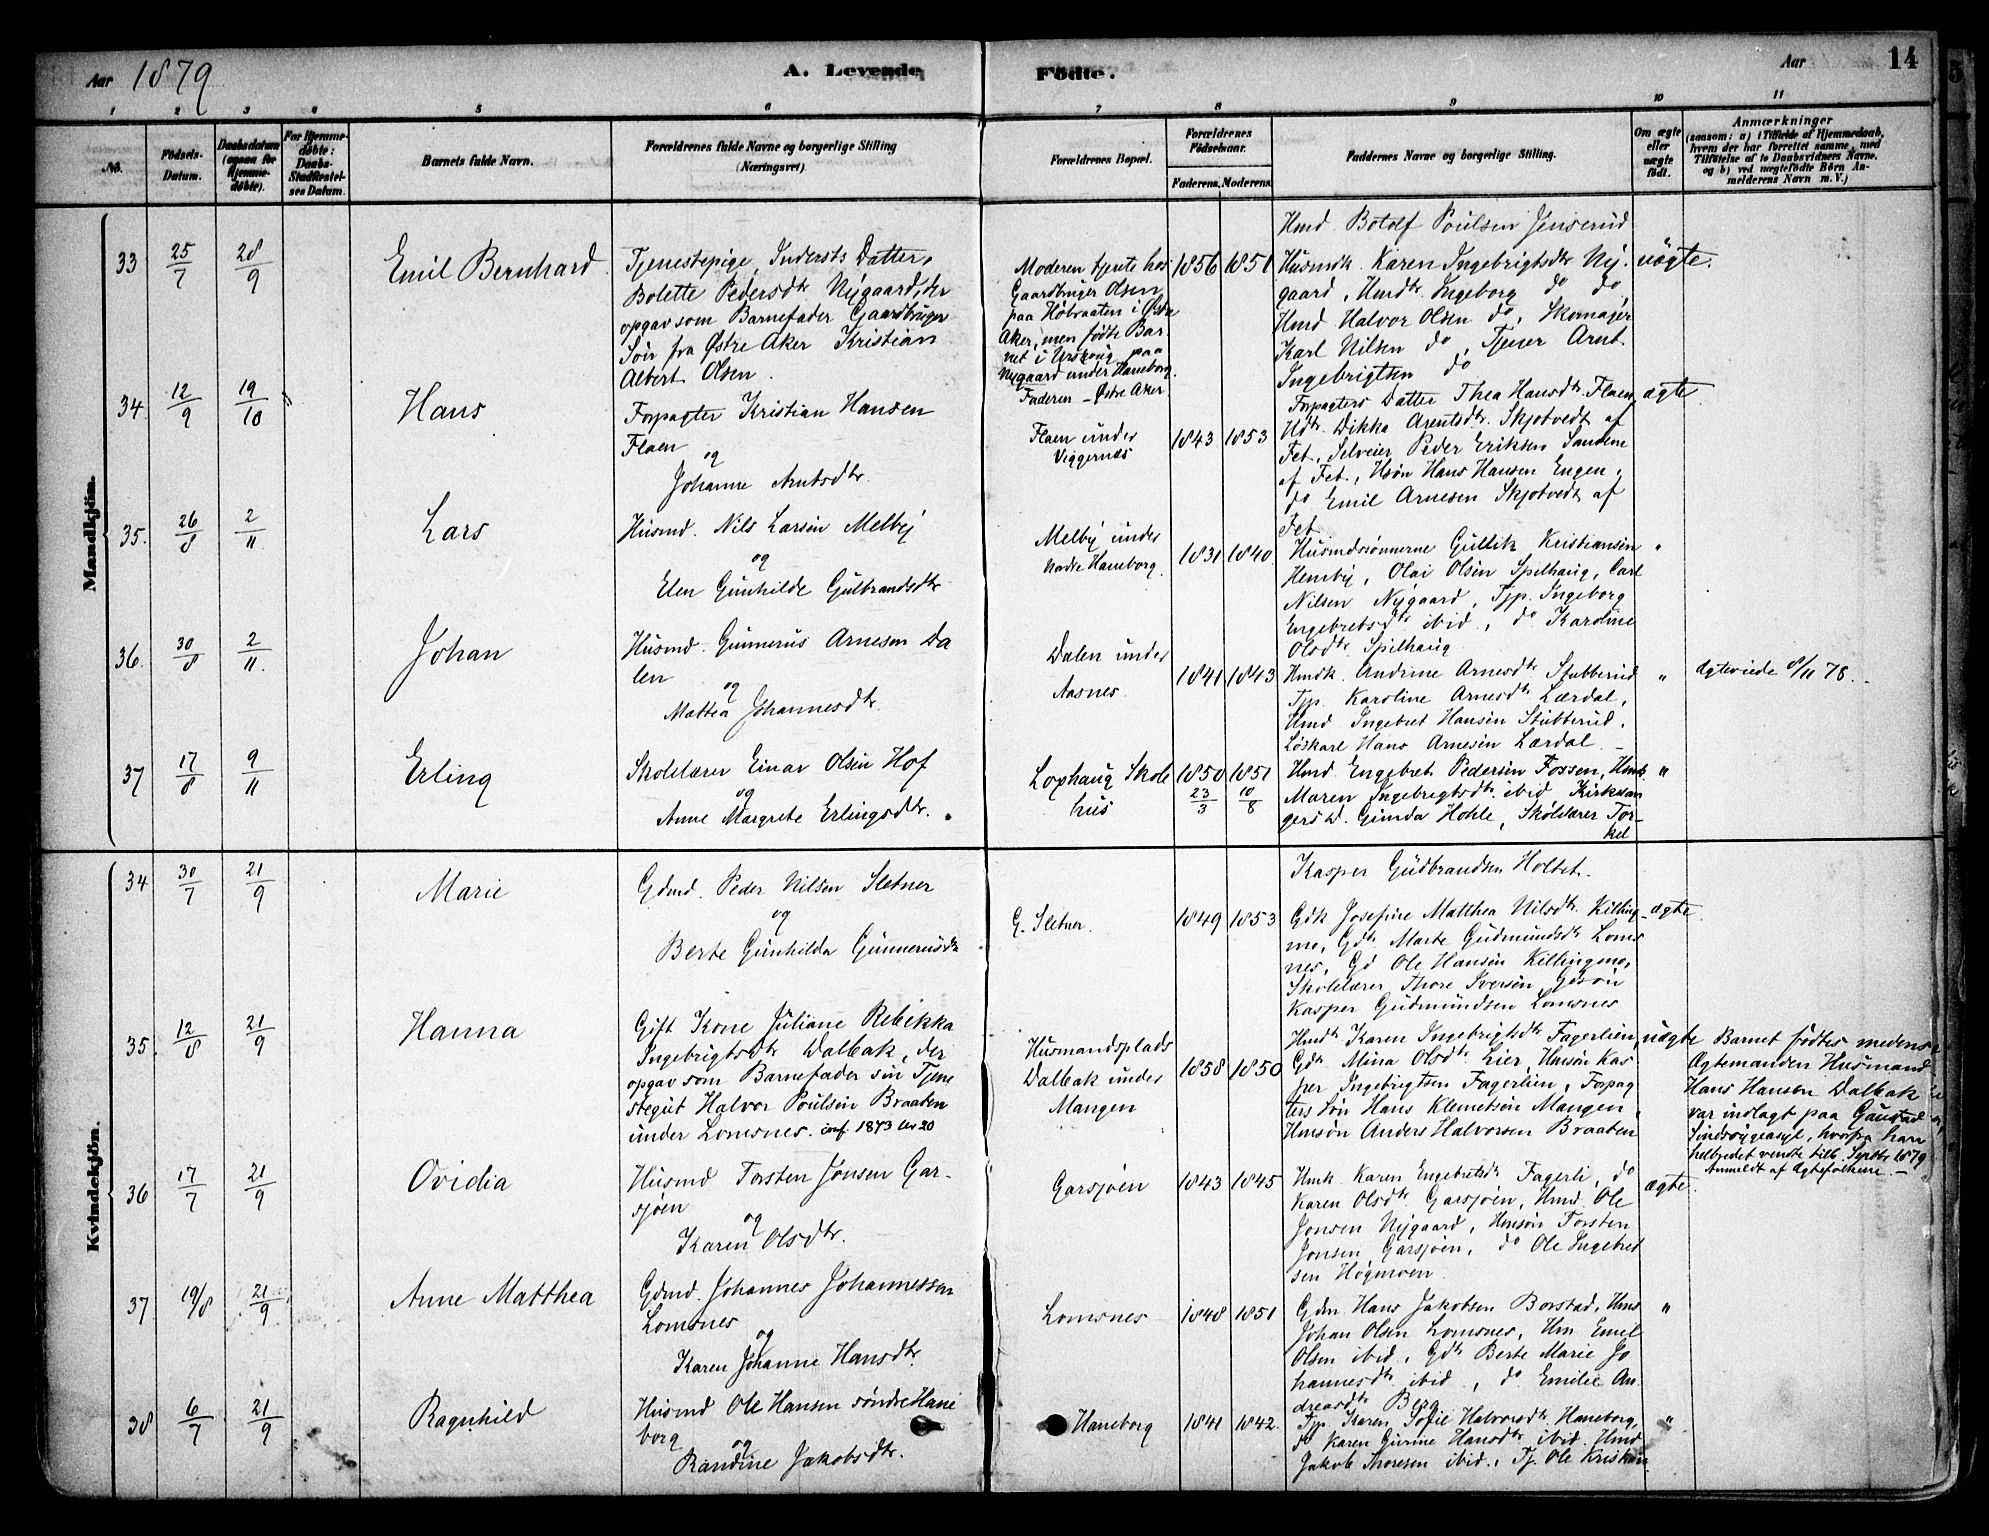 Aar 1879
A. Levende
Födte.
Aar
14
1 2 3 4 5 6 7 8 9 10 11
No.
Födsels-
Datum.
Daabsdatum
(ogsaa for
Hjemme-
döbte).
For Hjemme-
döbte:
Daabs-
Stadfæstel-
ses Datum.
Barnets fulde Navn.
Forældrenes fulde Navne og borgerlige Stilling
(Næringsvei)
Forældrenes Bopæl.
Forældrenes
Födselsaar.
Faderens. Moderens.
Faddernes Navne og borgerlige Stilling.
Om ægte
eller
uægte
födt.
Anmærkninger
(saasom: a) i Tilfælde af Hjemmedaab,
hvem der har forrettet samme, med
Tilföielse af to Daabsvidners Navne,
og b) ved uægtefödte Börn An-
melderens Navn m. V.)
Mandkjön.
33
25/7
28/9
Emil Bernhard
Tjenestepige, Indersts Datter,
Bolette Pedersdtr Nygaard, der
opgav som Barnefader Gaardbruger
Søn fra Østre Aker Kristian
Albert Olsen.
Moderen tjente hos
Gaardbruger Olsen
paa Høbraaten i Østre
Aker, men fødte Bar-
net i Urskoug paa
Nygaard under Haneborg.
Faderen - Østre Aker
1856 1851
Hmd Botolf Poulsen Jenserud
Husmdk. Karen Ingebrigtsdtr Ny-
gaard, Hmdtr. Ingeborg do do
Hmd Halvor Olsen do, Skomager
Karl Nilsen do, Tjener Arnt
Ingebrigtsen do
uægte.
34
12/9
19/10
Hans
Forpagter Kristian Hansen
Flaen
og
Johanne Arntsdtr.
Flaen under
Viggernæs
1843 1853
Forpagters Datter Thea Hansdtr. Flaen
Udtr. Dikka Arentsdtr. Skjotvedt af
Fet, Selveier Peder Eriksen Sandem
af Fet, Hsøn Hans Hansen Engen,
do Emil Arnesen Skjotvedt af
Fet.
ægte
35.
26/8
2/11
Lars
Husmd. Nils Larsen Melby
og
Elen Gunhilde Gulbrandsdtr
Melby under
Nordre Haneborg.
1831 1840
Husmdsønnerne Gullik Kristiansen
Hemby, Olai Olsen Spilhaug, Carl
Nilsen Nygaard, Tjp. Ingeborg
Engebretsdtr ibid, do Karoline
Olsdtr. Spilhaug
"
36.
30/8
2/11.
Johan
Husmd. Gunnerus Arnesen Da
len
og
Mattea Johannesdtr.
Dalen under
Aasnes.
1841 1843
Hmdk. Andrine Arnesdtr Stubberud
Tjp Karoline Arnesdtr Lærdal,
Hmd Ingebret Hansen Stubberud,
Løskarl Hans Arnesen Lærdal.
"
Ægteviede 8/11 78.
37
17/8
9/11
Erling
Skolelærer Einar Olsen Hof
og
Anne Margrete Erlingsdtr.
Loxhaug Skole
hus
1850 23/3
1851 10/8
Hmd Engebret Pedersen Fossen, Hmk
Maren Ingebrigtsdtr. ibid Kirksan
gers D. Gunda Hohle, Skolelærer Tor-
kel
"
Kvindekjön.
34
30/7
21/9
Marie
Gdmd. Peder Nilsen Sletner
og
Berte Gunhilda Gunnerusdtr
G. Sletner.
1849 1853
Kasper Gudbrandsen Holtet.
Gdk Josefine Matthea Nilsdtr. Killing-
mo, Gdtr Marte Gudmundsdtr Loms
nes, Gd Ole Hansen Killingmo,
Skolelærer Thore Iversen, Gdsøn
Kasper Gudmundsen Lomsnes
ægte
35.
12/8
21/9
Hanna
Gift Kone Juliane Rebekka
Ingebrigtsdtr Dalbak, der
opgav som Barnefader sin Tjene
stegut Halvor Poulsen Braaten
under Lomsnes. conf. 1873 No 20
Husmandsplads
Dalbak under
Mangen
1858 1850
Hmdtr Karen Ingebrigtsdtr Fagerlien,
Gdtr Mina Olsdtr Lier, Hmsøn Kas
per Ingebrigtsen Fagerlien, Forpag
ters Søn Hans Klemetsen Mangen,
Hmsøn Anders Halvorsen Braaten
uægte
Barnet fødtes medens
Ægtemanden Husmand
Hans Hansen Dalbak
var indlagt paa Gaustad
Sindssygeasyl, hvorfra han
helbredet vendte tilb. Septbr 1879
Anmeldt af Ægtefolkene.
36
17/7
21/9
Ovidia
Husmd Torsten Jonsen Gar-
sjøen
og
Karen Olsdtr.
Garsjøen
1843 1845
Hmk Karen Engebretsdtr Fagerli, do
Karen Olsdtr Garsjøen, Hmd. Ole
Jonsen Nygaard, Hmsøn Torsten
Jonsen Garsjøen, do Ole Ingebret
sen Høgmoen
ægte.
37
19/8
21/9
Anne Matthea
Gdmd. Johannes Johannessen
Lomsnes
og
Karen Johanne Hansdtr.
Lomsnes
1848 1851
Gdm Hans Jakobsen Borstad, Hmd
Johan Olsen Lomsnes, Hm Emil
Olsen ibid, Gdtr Berte Marie Jo
hannesdtr ibid, do Emilie An
dreasdtr Berg
"
38
6/7
21/9
Ragnhild
Husmd Ole Hansen søndre Hane
borg
og
Randine Jakobsdtr.
Haneborg
1841 1842.
Tjp Karen Sofie Halvorsdtr. Haneborg,
do Karen Gurine Hansdtr ibid. Hmd
Jakob Thoresen ibid., Tj. Ole Kristian
"